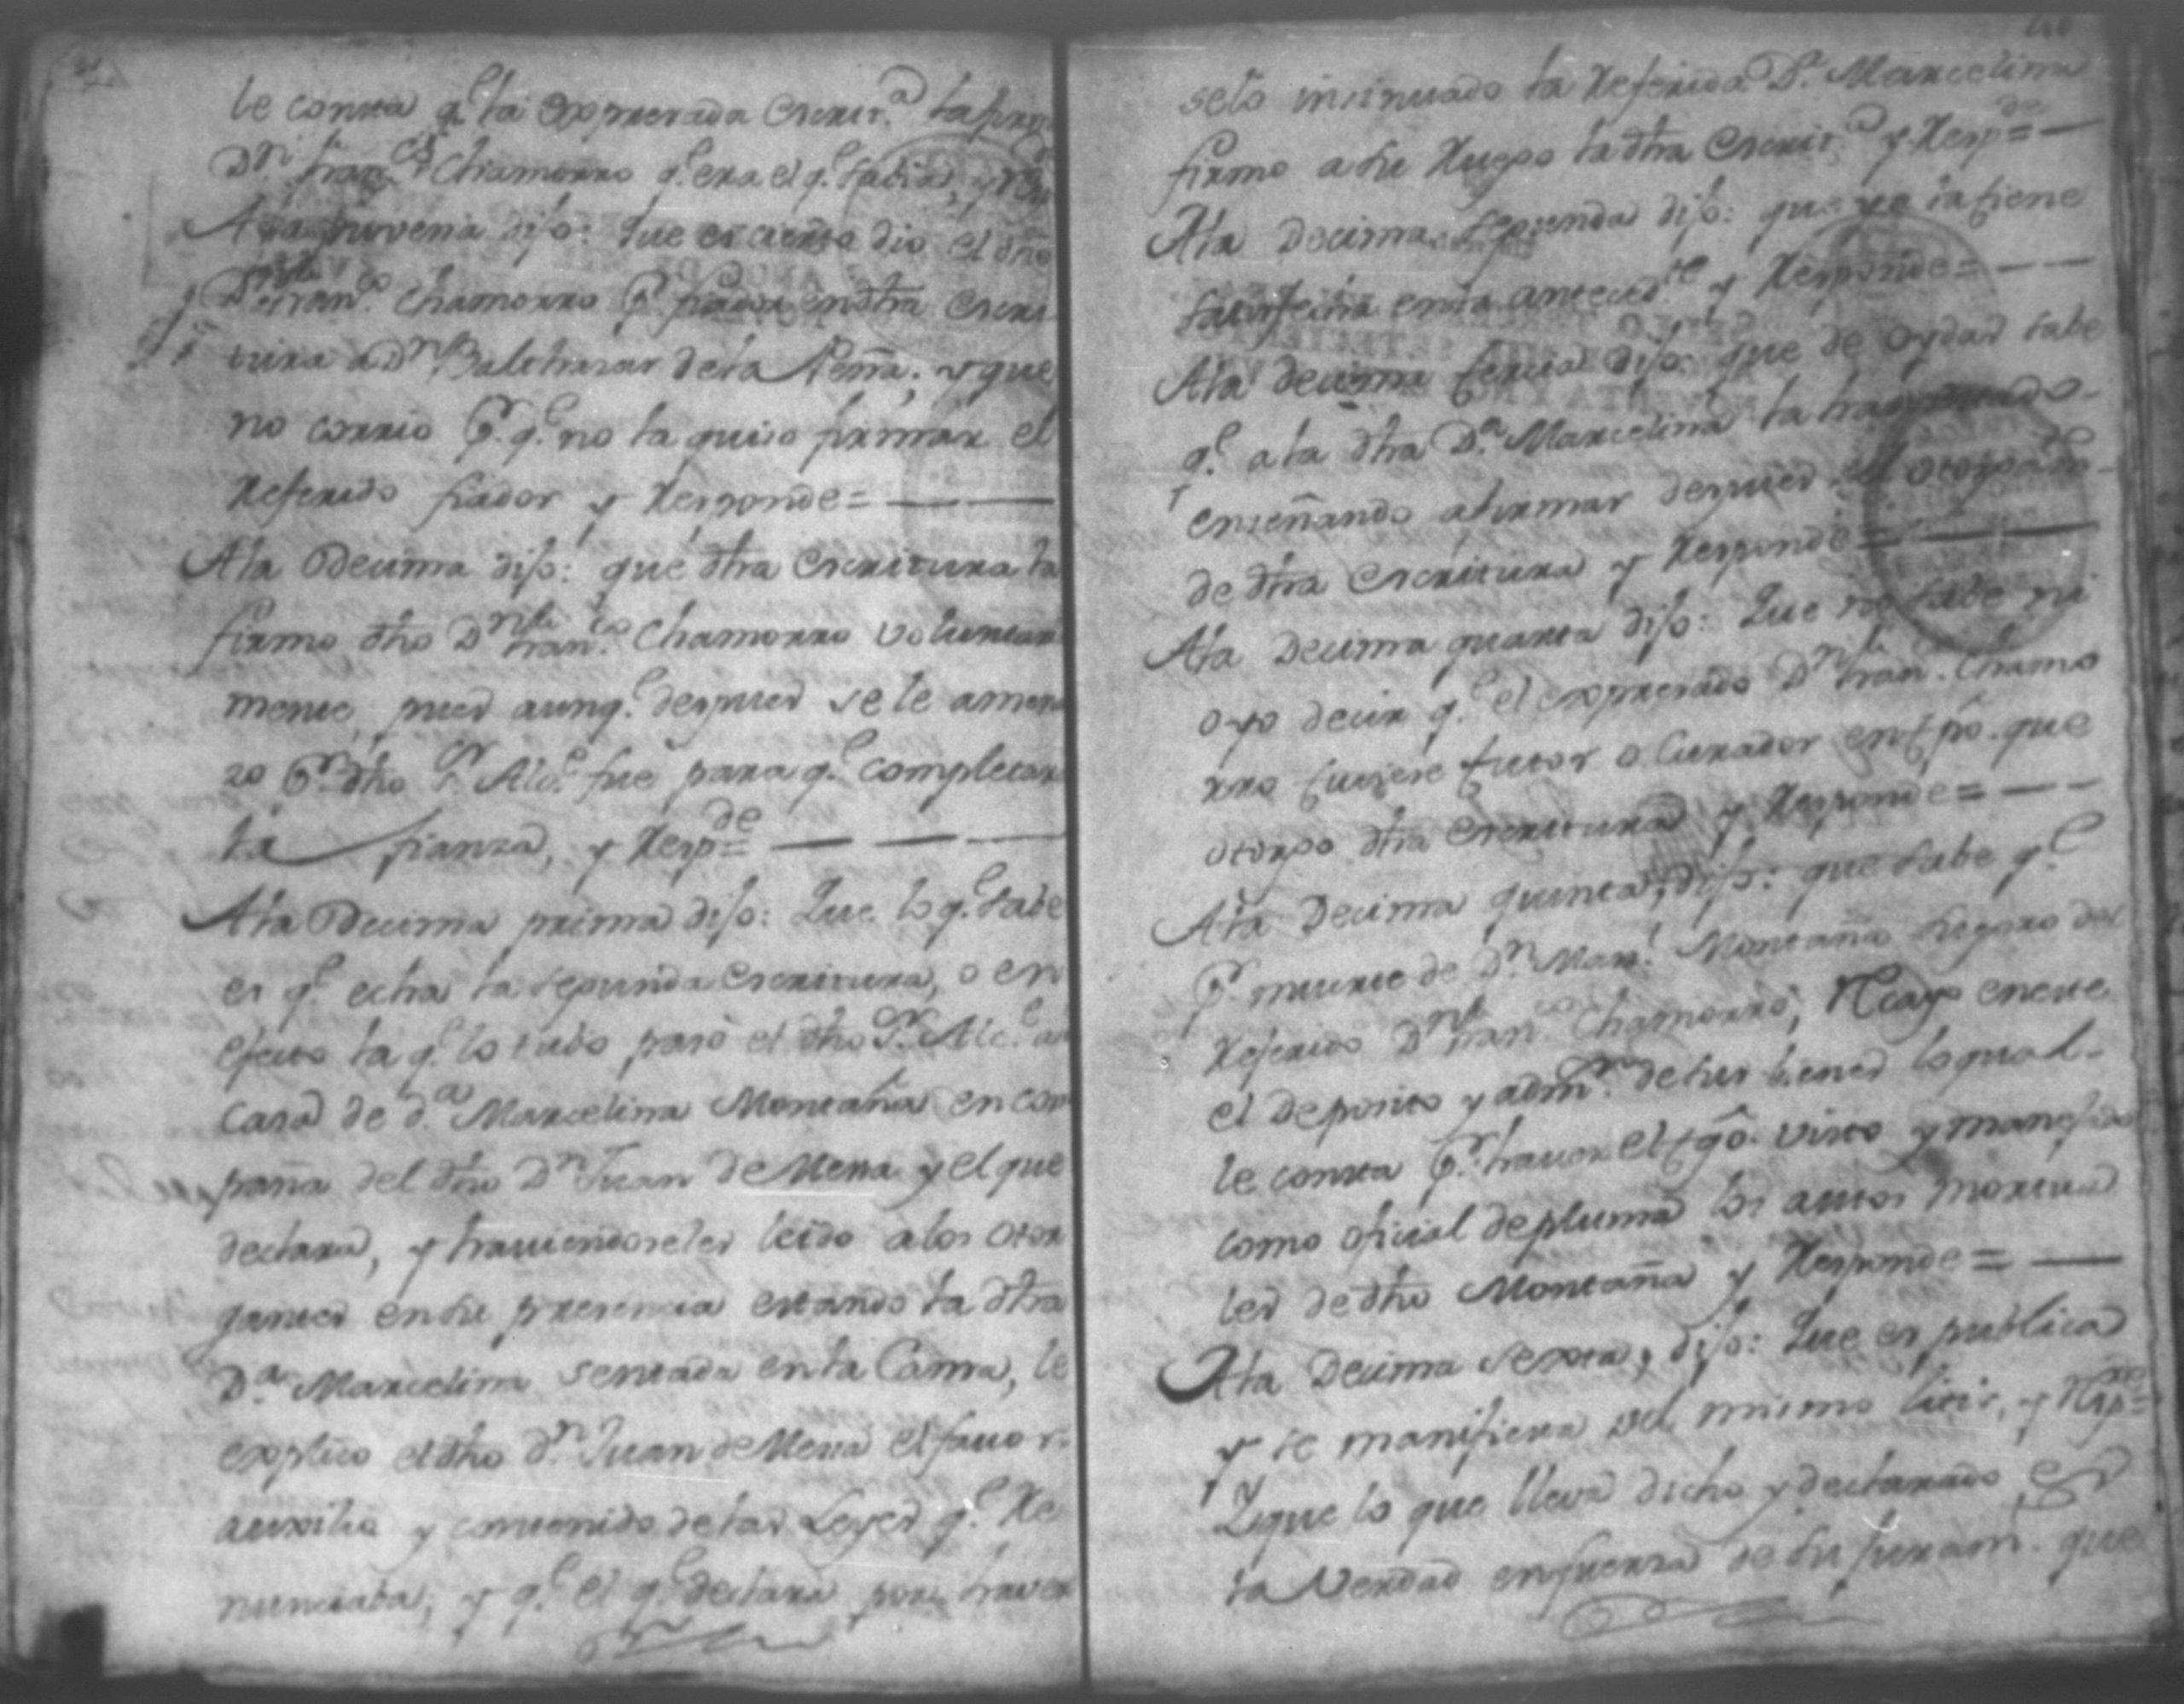 le consta q.e la expresada Escrit.a la firmo
D.n Fran.co Chamorro q.e era el q.e savia, y
A la novena dijo: Que es cierto dio el dho
D.n Fran.co Chamorro p.r fiador en dha Escri
tura a D.n Balthasar de la Peña; y que
no corrio p.r q.e no la quiso firmar el
Referido fiador y Responde=
A la Decima dijo: que dha Escritura la
firmo dho D.n Fran.co Chamorro voluntaria
mente, pues aunq.e despues se le amena
zo p.r dho S.r Alc.e fue para q.e completara
la fianza, y Resp.de=
A la Decima prima dijo: Que lo q.e save
es q.e echa la segunda Escritura, o en
efecto la q.e lo tubo, pasó el dho S.r Alc.e a
casa de d.a Marcelina Montaña en com
pañia del dho D.n Juan de Mena y el que
declara, y haviendoseles leido a los otor
gantes en su presencia estando la dha
D.a Marcelina sentada en la Cama, le
explico el dho d.n Juan de Mena el favor
auxilio y contenido de las Leyes q.e Re
nunciaba; y q.e el q.e declara por haver
selo insinuado la Referida D.a Marcelina
firmo a su Ruego la dha Escrit.a y Resp.de=
A la Decima segunda dijo: que ya la tiene
satisfecha en la anteced.te y Responde=
A la decima tercia dijo: que de oydas save
q.e a la dha D.a Marcelina la han
enseñando a firmar despues del otorgam.to
de dha Escritura y Responde=
A la Decima quarta dijo: Que no save ni
oyo decir q.e el expresado D.n Fran.co Chamo
rro tuviese tutor o Curador en el tpo. que
otorgo dha Escritura y Responde=
A la Decima quinta, dijo: que save q.e
p.r muerte de D.n Man.l Montaña suegro del
Referido D.n Fran.co Chamorro, Recayo en este
el deposito y adm.on de sus bienes lo qual
le consta p.r haver el tgo. visto y manejado
como oficial de pluma los autos mortua
les de dho Montaña y Responde=
A la Decima sexta, dijo: Que es publica
y se manifiesta del mismo litis, y Rsp.de=
Y que lo que lleva dicho y declarado es
la Verdad en fuerza de su juram.to que